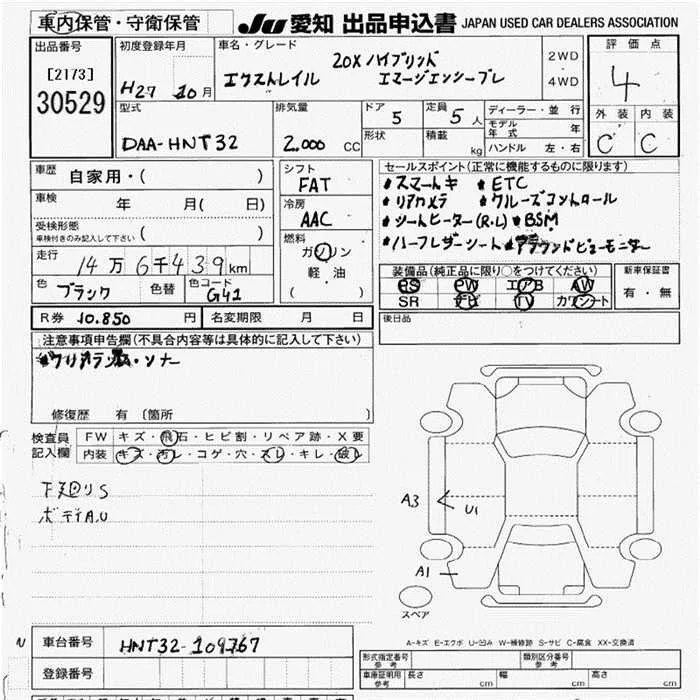 車内保管・守衛保管
JU 愛知 出品申込書 JAPAN USED CAR DEALERS ASSOCIATION
出品番号
[2173]
30529
初度登録年月
H27 10月
車名・グレード
20X ハイブリッド
エクストレイル エマージェンシーブレ
2WD
4WD
評価点
4
外装 内装
C C
型式
DAA-HNT32
排気量
2.000 CC
ドア
5
定員
5人
形状
積載
kg
ディーラー・並行
モデル年式 年
ハンドル 左・右
車歴
自家用・( )
車検
年 月( 日)
受検形態
車検付きのみ記入して下さい ( )
走行
14万6千439km
色
ブラック
色替
色コード
G41
シフト
FAT
冷房
AAC
燃料
ガソリン
軽油
( )
セールスポイント(正常に機能するものに限ります)
スマートキ ETC
リアカメラ クルーズコントロール
シートヒーター(R.L) BSM
ハーフレザーシート アラウンドビューモニター
装備品(純正品に限り○をつけてください)
PS PW エアB AW
SR ナビ TV カワシート
新車保証書
有・無
後日品
R券 10.850 円
名変期限 月 日
注意事項申告欄(不具合内容等は具体的に記入して下さい)
クリアランス・ソナー
修復歴 有 〔箇所 〕
検査員記入欄
FW キズ・飛石・ヒビ割・リペア跡・X要
内装 キズ・汚レ・コゲ・穴・スレ・キレ・破レ
下廻りS
ボディA,U
A3
U1
A1
スペア
A-キズ E-エクボ U-凹み W-補修跡 S-サビ C-腐食 XX-交換済
N
車台番号
HNT32-109767
登録番号
形式指定番号
参考
類別区分番号
参考
車庫証明用
参考
長さ cm
幅 cm
高さ cm